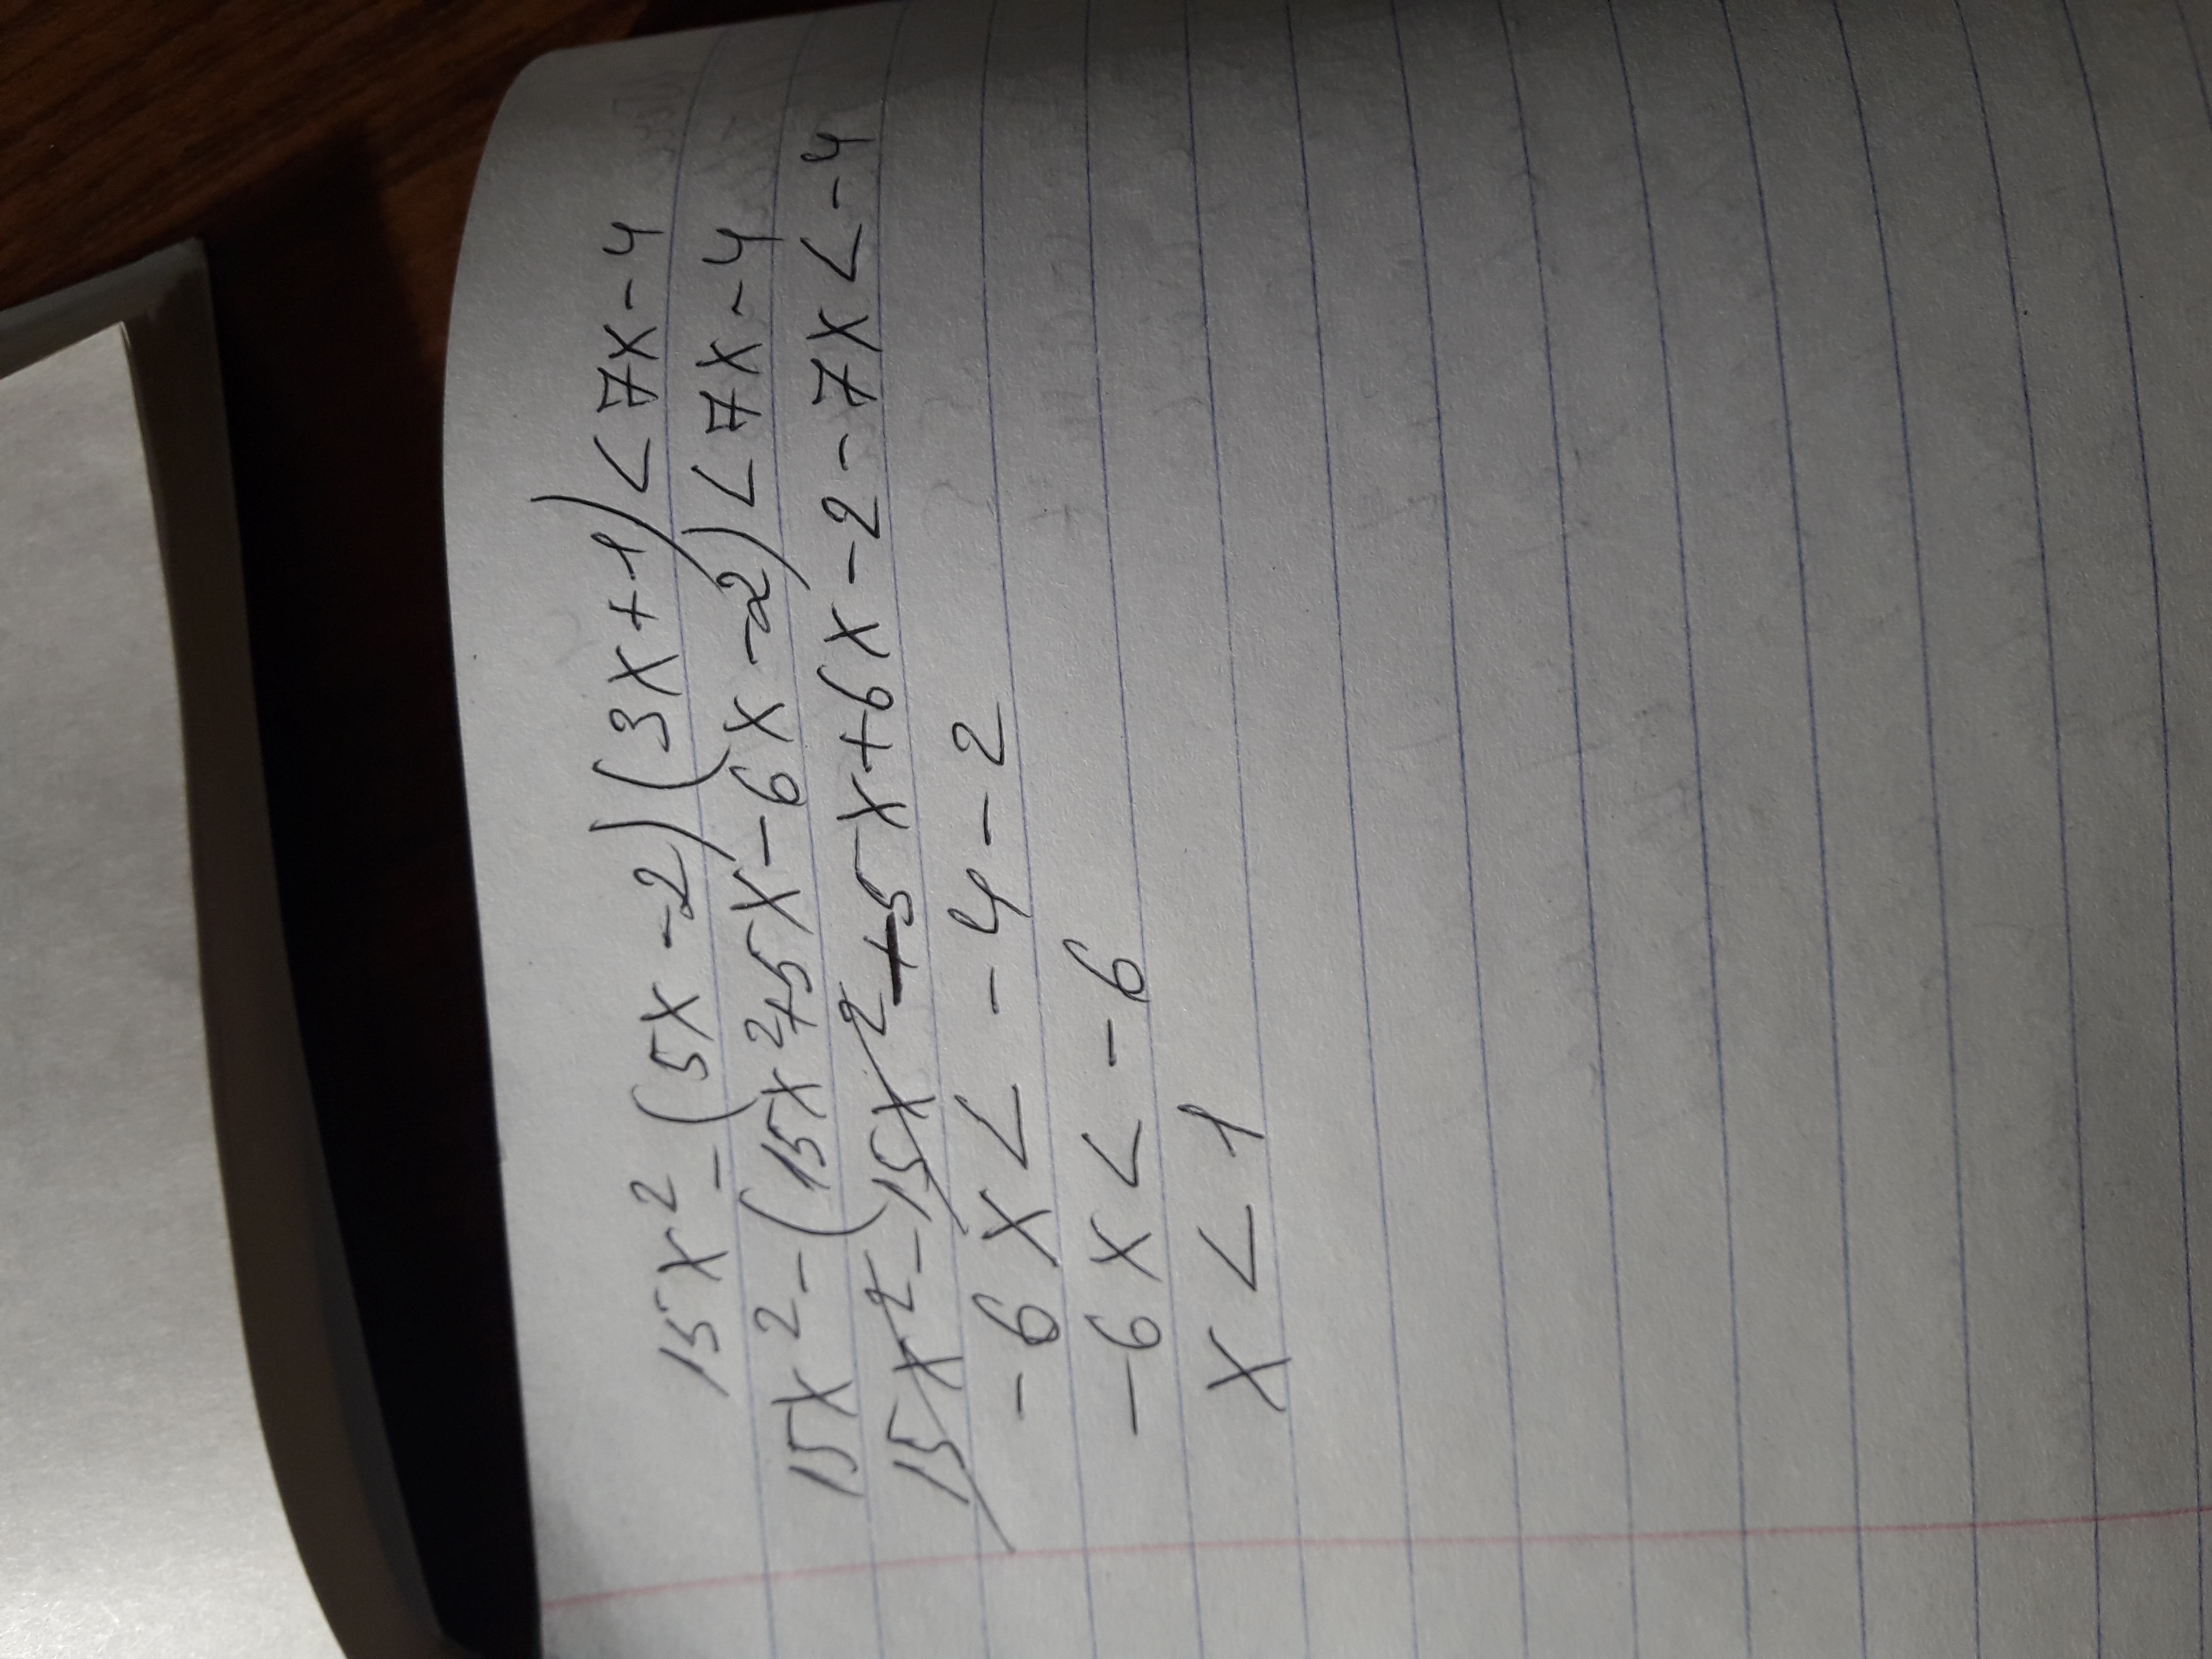 15x² - (5x - 2)(3x + 1) < 7x - 4
15x² - (15x² + 5x - 6x - 2) < 7x - 4
15x² - 15x² + 5x + 6x - 2 - 7x < -4
-6x < -4 - 2
-6x < -6
x < 1